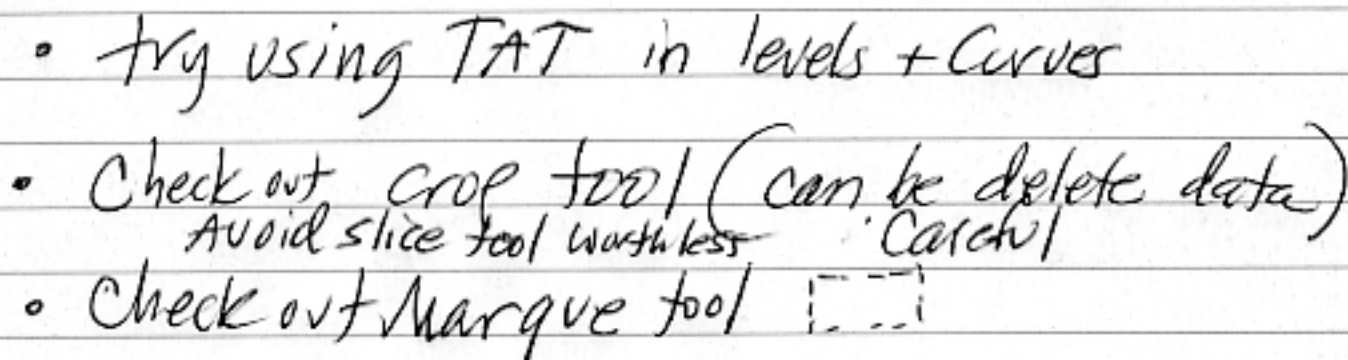 • try using TAT in levels + Curves
• Check out crop tool (can be delete data)
Avoid slice tool worthless Careful
• Check out Marque tool